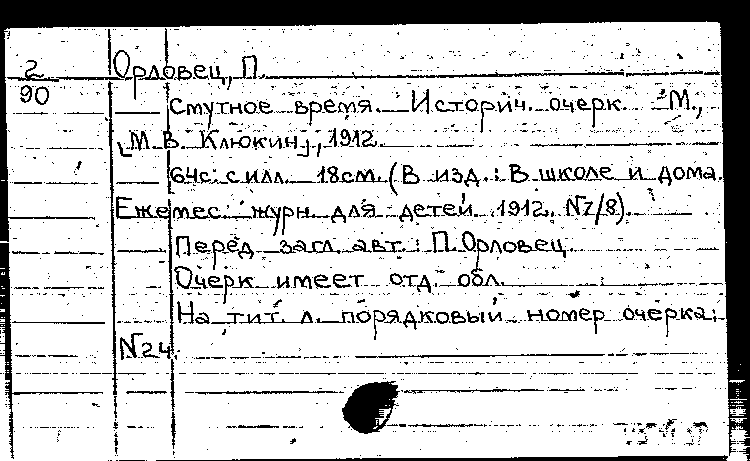 2
90
Орловец, П.
Смутное время. Историч. очерк. М.,
[М.В. Клюкин], 1912.
64с. с илл. 18см. (В изд.: В школе и дома.
Ежемес. журн. для детей. 1912, №7/8).
Перед загл. авт.: П.Орловец.
Очерк имеет отд. обл.
На тит. л. порядковый номер очерка:
№24.